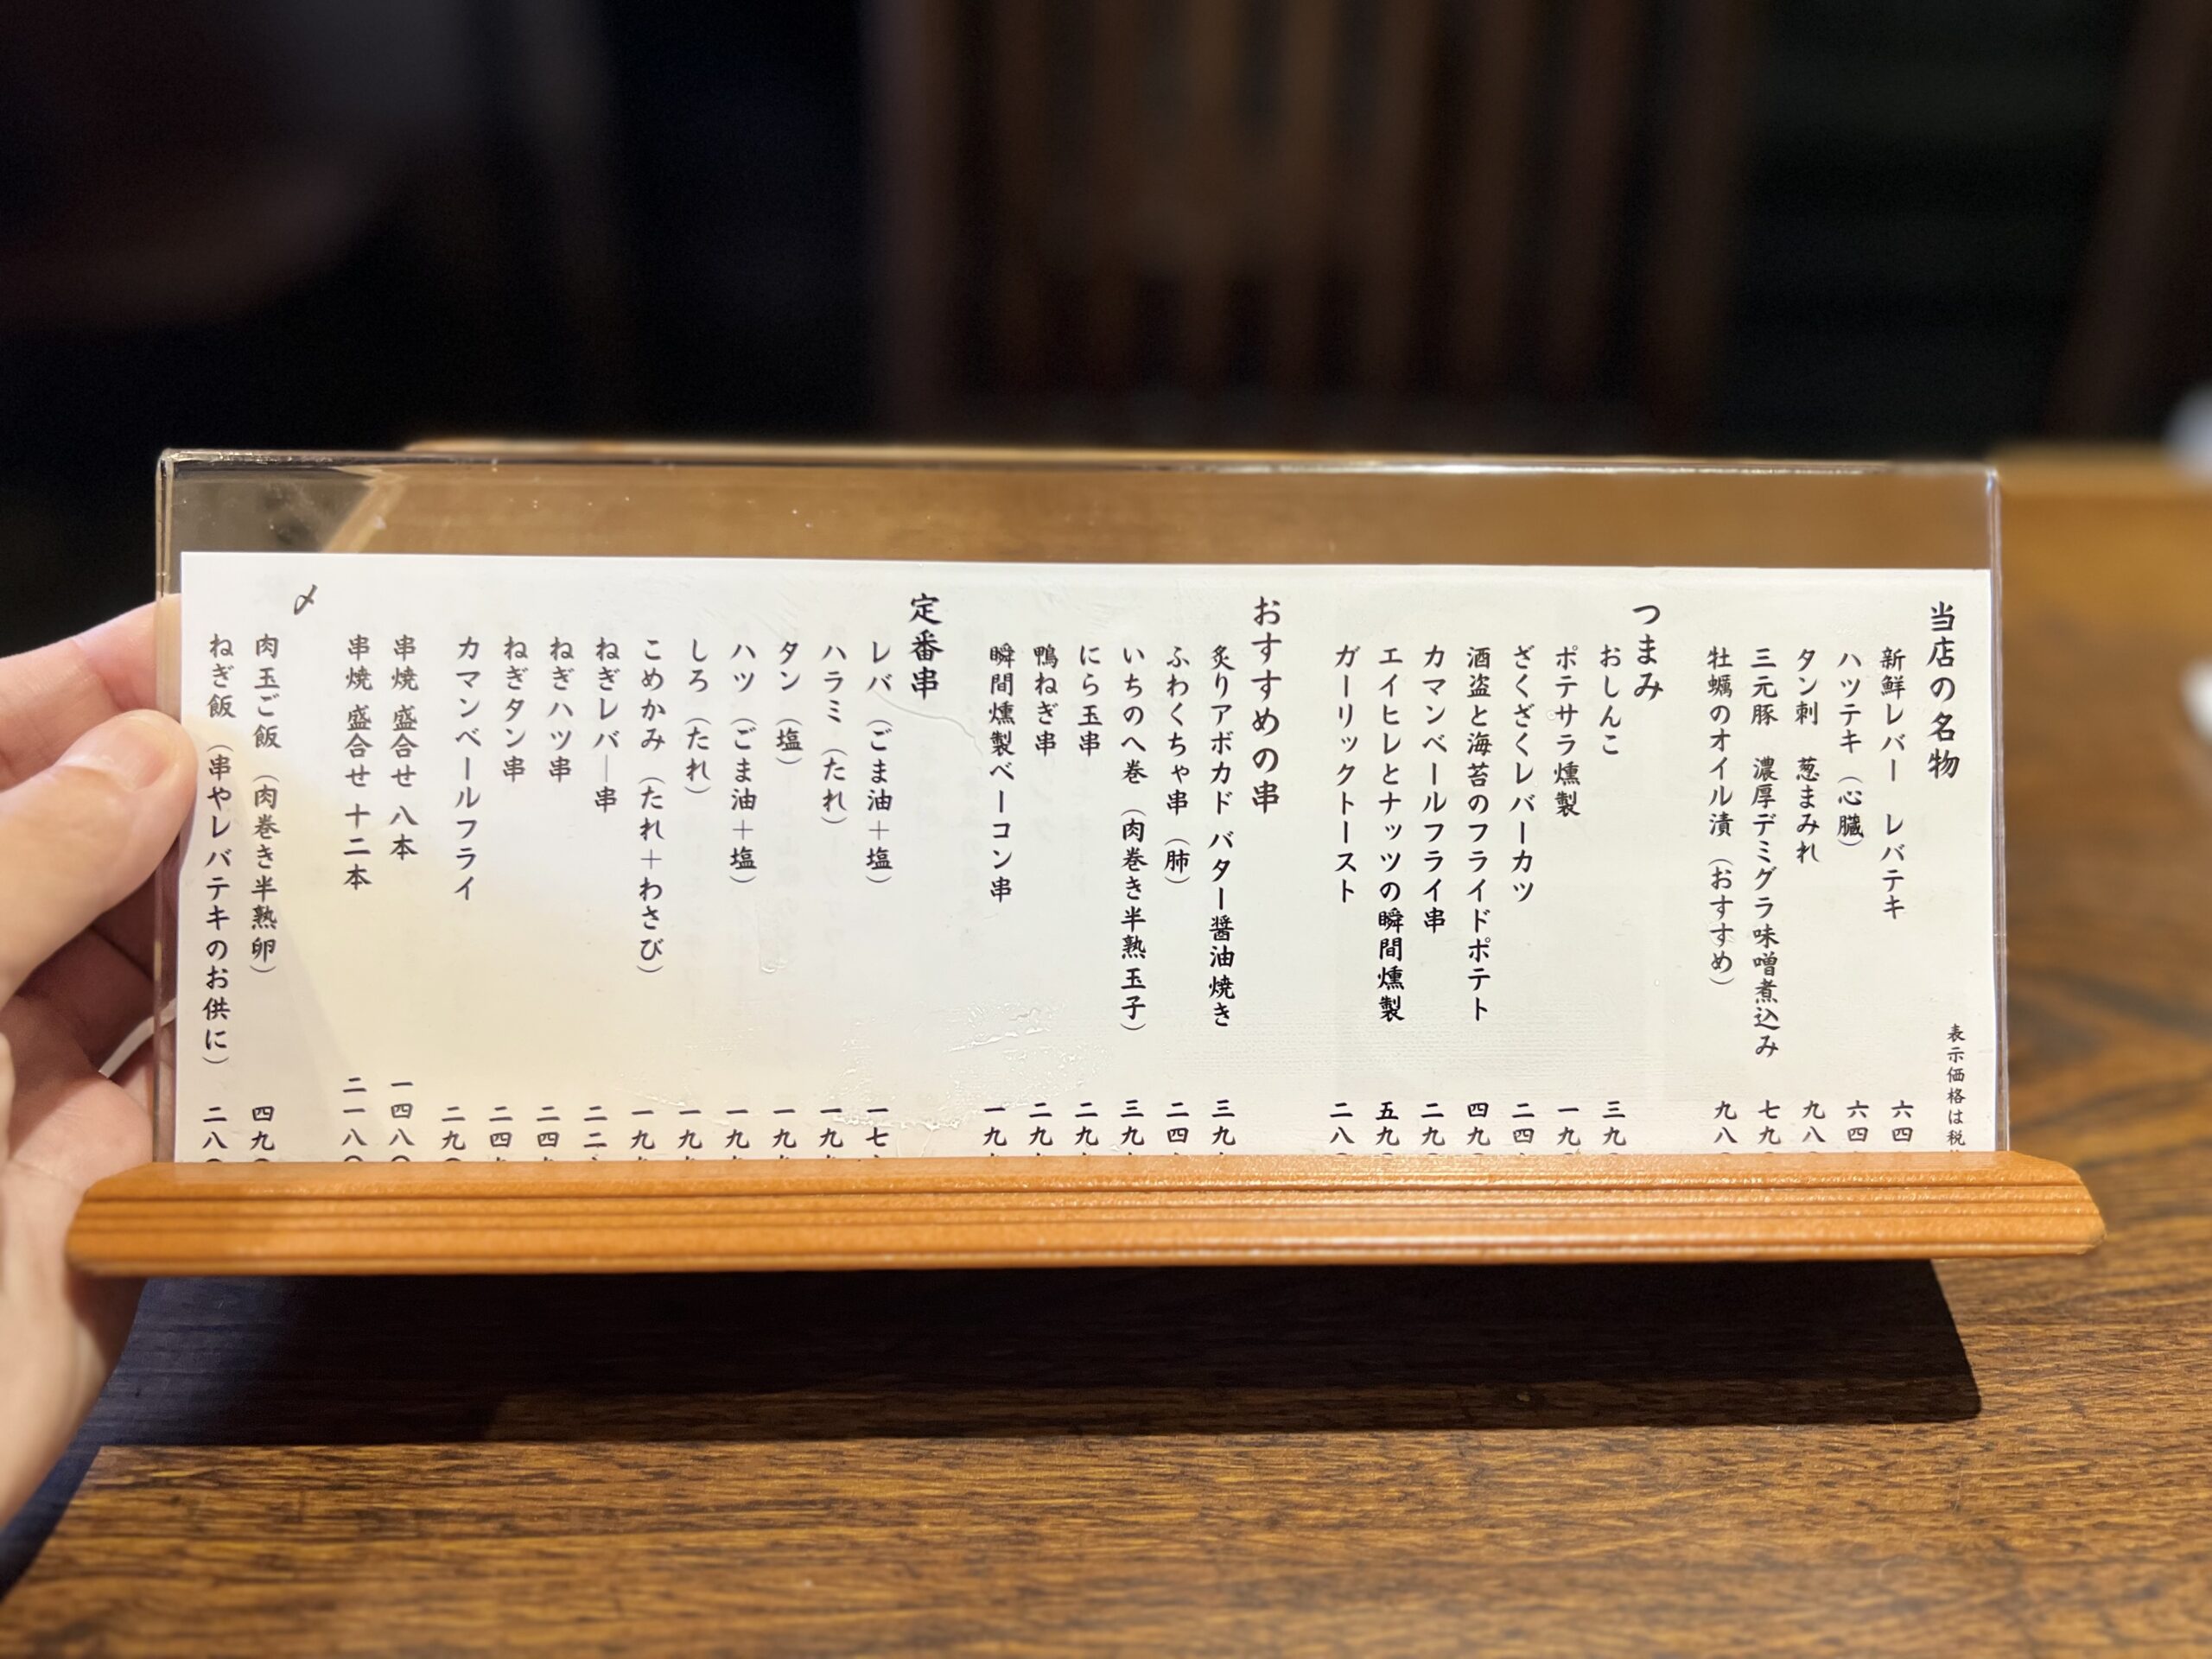 当店の名物
表示価格は税
新鮮レバー レバテキ 六四
ハツテキ（心臓） 六四
タン刺 葱まみれ 九八
三元豚 濃厚デミグラ味噌煮込み 七九
牡蠣のオイル漬（おすすめ） 九八
つまみ
おしんこ 三九
ポテサラ燻製 一九
ざくざくレバーカツ 二四
酒盗と海苔のフライドポテト 四九
カマンベールフライ串 二九
エイヒレとナッツの瞬間燻製 五九
ガーリックトースト 二八
おすすめの串
炙りアボカド バター醤油焼き 三九
ふわくちゃ串（肺） 二四
いちのへ巻（肉巻き半熟玉子） 三九
にら玉串 二九
鴨ねぎ串 二九
瞬間燻製ベーコン串 一九
定番串
レバ（ごま油＋塩） 一七
ハラミ（たれ） 一九
タン（塩） 一九
ハツ（ごま油＋塩） 一九
しろ（たれ） 一九
こめかみ（たれ＋わさび） 一九
ねぎレバ―串 二二
ねぎハツ串 二四
ねぎタン串 二四
カマンベールフライ 二九
串焼 盛合せ 八本 一四八
串焼 盛合せ 十二本 二一八
〆
肉玉ご飯（肉巻き半熟卵） 四九
ねぎ飯（串やレバテキのお供に） 二八